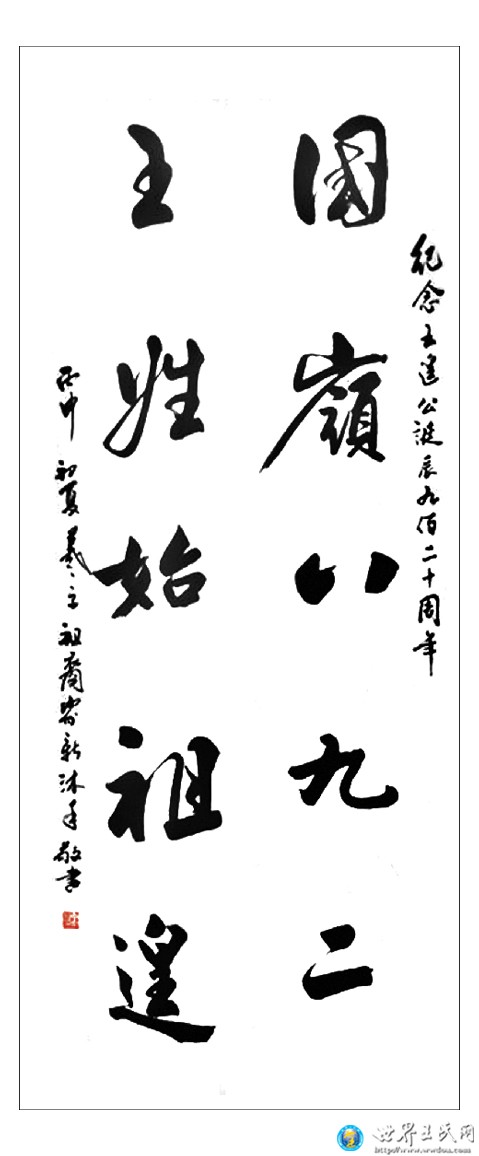 纪念王遑公誔辰九佰二十周年
国嶺八九二
王姓始祖遑
丙申初夏羲之祖裔新沐手敬书
世界王氏网
http://www.wwdou.com